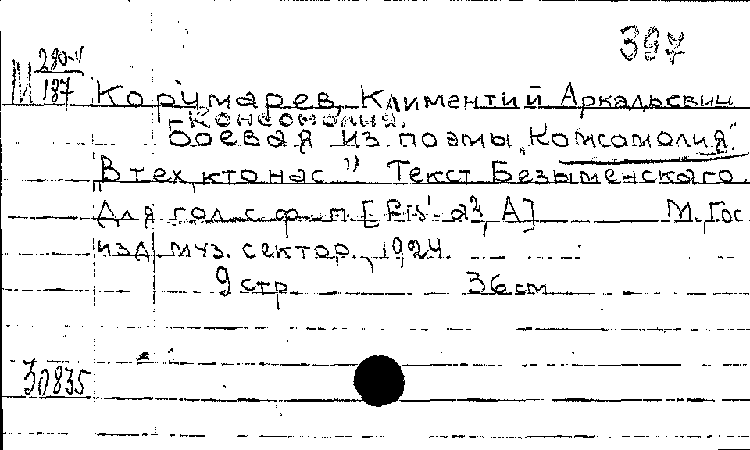 397
М 280-V
187
Корчмарев, Климентий Аркадьевич
Комсомолия.
Боевая из поэмы "Комсомолия".
"В тех, кто нас" Текст Безыменского.
Для гол. с ф-п. [Eis¹-a², A] М. Гос
изд муз. сектор. 1924.
9 стр. 36 см
30835